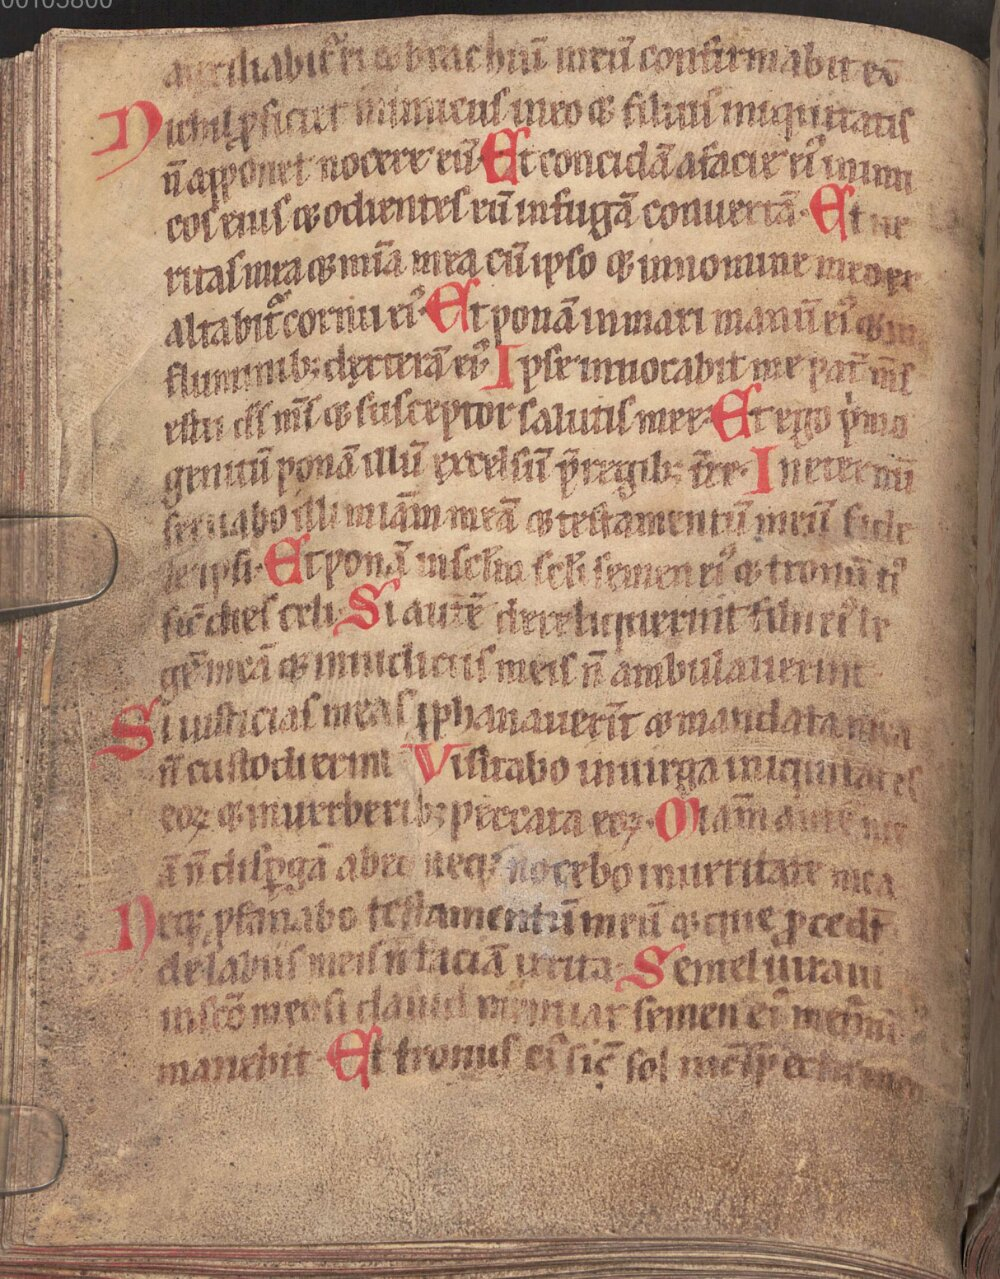 auxiliabit᷑ ei ⁊ brachiū meū confirmabit eū
Nichil ꝓficiet inimicus in eo ⁊ filius iniquitatis
n̄ apponet nocere eū Et concidā a facie eiꝰ inimi
cos eius ⁊ odientes eū in fugā conuertā· Et ue
ritas mea ⁊ mīa mea cū ipso ⁊ in nomine meo ex
altabit᷑ cornu eiꝰ Et ponā in mari manū eiꝰ ⁊ in
fluminib; dexterā eiꝰ Ipse inuocabit me pat̄ m̄s
es tu ds̄ m̄s ⁊ susceptor salutis mee· Et ego p̄mo
genitū ponā illū excelsū p̄ regib; t̄re· In eternū
seruabo illi mīam meā ⁊ testamentū meū fide
le ipsi· Et ponā in sclm̄ scli semen eiꝰ ⁊ tronū eiꝰ
sic̄ dies celi· Si autē dereliquerint filii eiꝰ le
gē meā ⁊ in iudiciis meis n̄ ambulauerint
Si iusticias meas ꝓphanauerīt ⁊ mandata mea
n̄ custodierint Visitabo in uirga iniquitates
eoꝝ ⁊ in uerberib; peccata eoꝝ· Mīam autē me
ā n̄ disꝑgā ab eo neq; nocebo in ueritate mea
Neq; ꝓfanabo testamentū meū ⁊ que ꝓcedūt
de labiis meis n̄ faciā irrita· Semel iuraui
in scō meo si dauid mentiar semen eiꝰ in et̄nū
manebit Et tronus eiꝰ sic̄ sol in c̄spectu meo